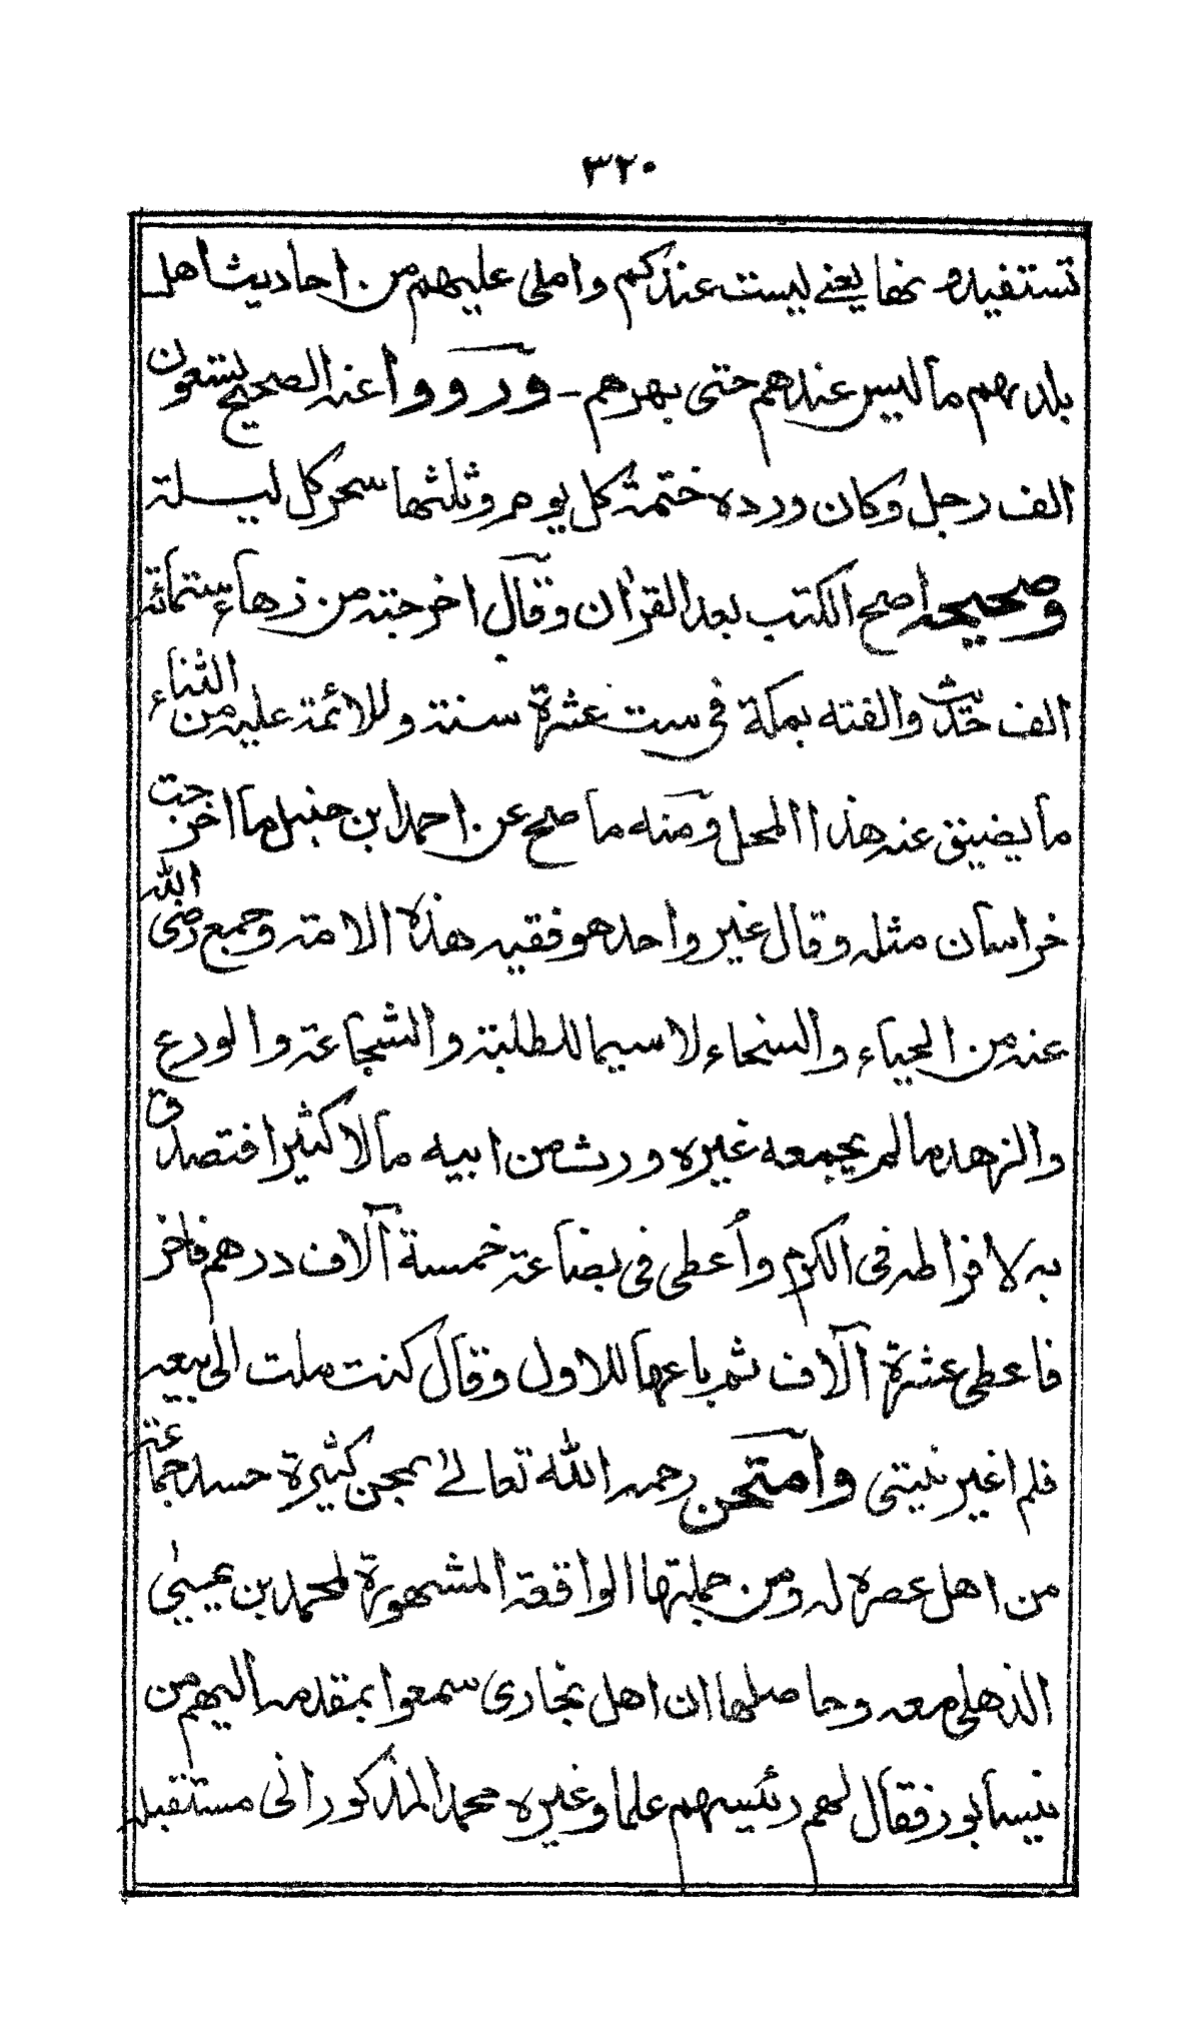 ٣٢٠
تستفيدونها يعني ليست عندكم واملى عليهم من احاديث اهل
بلدهم ما ليس عندهم حتى بهرهم - ورووا عنه الصحيح تسعون
الف رجل وكان ورده ختمة كل يوم وثلثها سحر كل ليلة
وصحيحه أصح الكتب بعد القرأن وقال اخرجته من زهاء ستمائة
الف حديث والفته بمكة في ست عشرة سنة وللائمة عليه من الثناء
ما يضيق عنه هذا المحل ومنه ما صح عن احمد ابن حنبل ما اخرجت
خراسان مثله وقال غير واحد هو فقيه هذه الامة وجمع رضى الله
عنه من الحياء والسخاء لا سيما للطلبة والشجاعة والورع
والزهد ما لم يجمعه غيره وورث من ابيه مالا كثيرا فتصدق
به لافراطه فى الكرم وأعطى فى بضاعة خمسة آلاف درهم فاخر
فاعطى عشرة آلاف ثم باعها للاول وقال كنت ملت الى بيعه
فلم اغير نيتى وامتحن رحمه الله تعالى بمحن كثيرة حسد جماعة
من اهل عصره له ومن جملتها الواقعة المشهورة لمحمد بن يحيى
الذهلى معه وحاصلها ان اهل بخارى سمعوا بمقدمه اليهم من
نيسابور فقال لهم رئيسهم علما وغيره محمد المذكور انى مستقبله